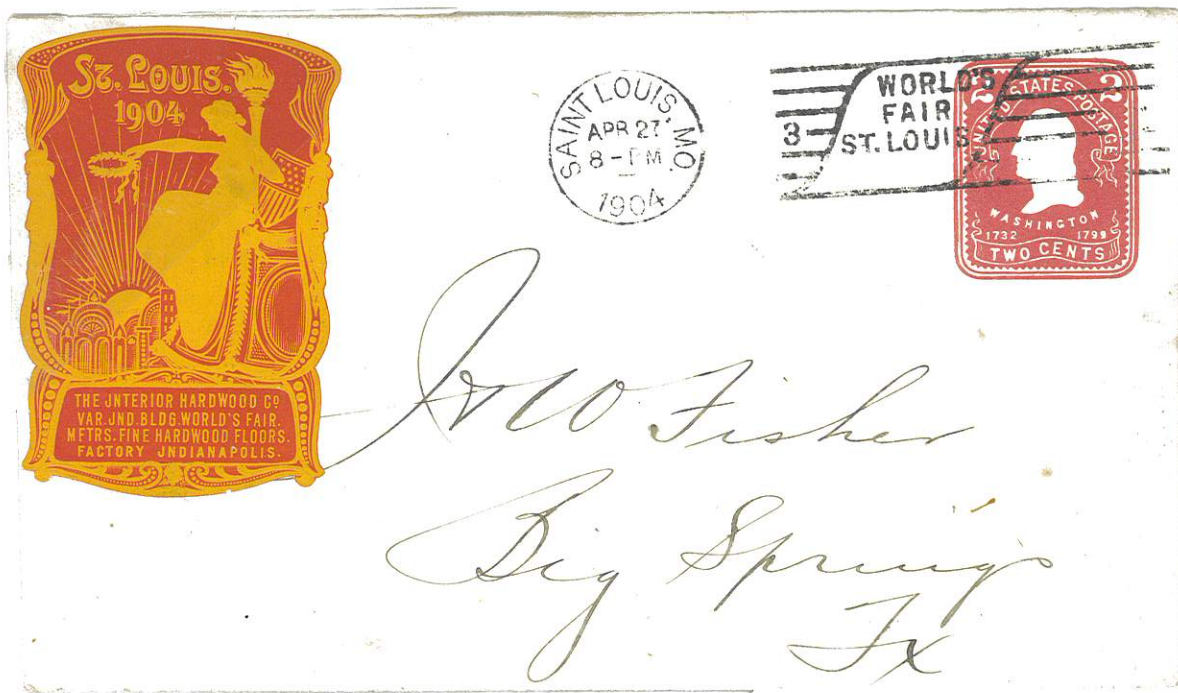 St. Louis.
1904
THE JNTERIOR HARDWOOD Co
VAR. JND. BLDG. WORLD'S FAIR.
MFTRS. FINE HARDWOOD FLOORS.
FACTORY JNDIANAPOLIS.
SAINT LOUIS, MO.
APR 27
8-PM
1904
3
WORLD'S
FAIR
ST. LOUIS
2 2
UNITED STATES POSTAGE
WASHINGTON
1732 1799
TWO CENTS
Fisher
Big Springs
Tx